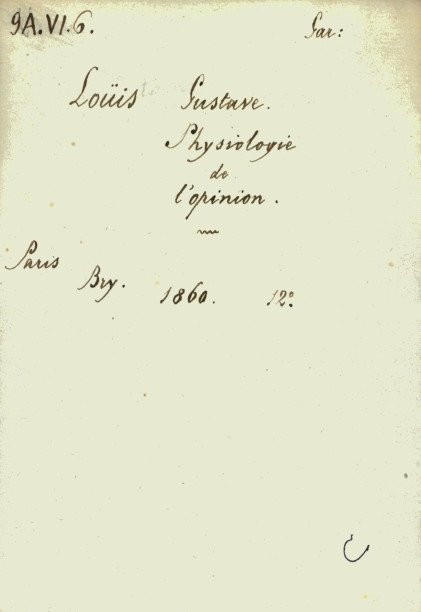 9A.VI.6. Gar:
Loüis Gustave.
Physiologie
de
l'opinion.
Paris
Bry. 1860. 12º